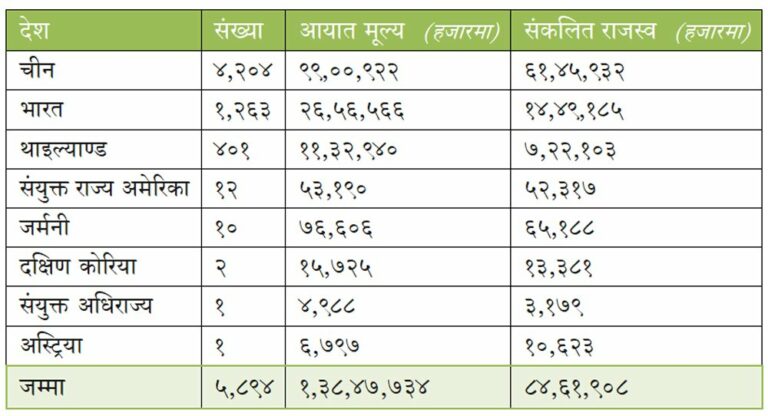 देश संख्या आयात मूल्य (हजारमा) संकलित राजस्व (हजारमा)
चीन ४,२०४ ९९,००,९२२ ६१,४५,९३२
भारत १,२६३ २६,५६,५६६ १४,४९,१८५
थाइल्याण्ड ४०१ ११,३२,९४० ७,२२,१०३
संयुक्त राज्य अमेरिका १२ ५३,१९० ५२,३१७
जर्मनी १० ७६,६०६ ६५,१८८
दक्षिण कोरिया २ १५,७२५ १३,३८१
संयुक्त अधिराज्य १ ४,९८८ ३,१७९
अस्ट्रिया १ ६,७९७ १०,६२३
जम्मा ५,८९४ १,३८,४७,७३४ ८४,६१,९०८